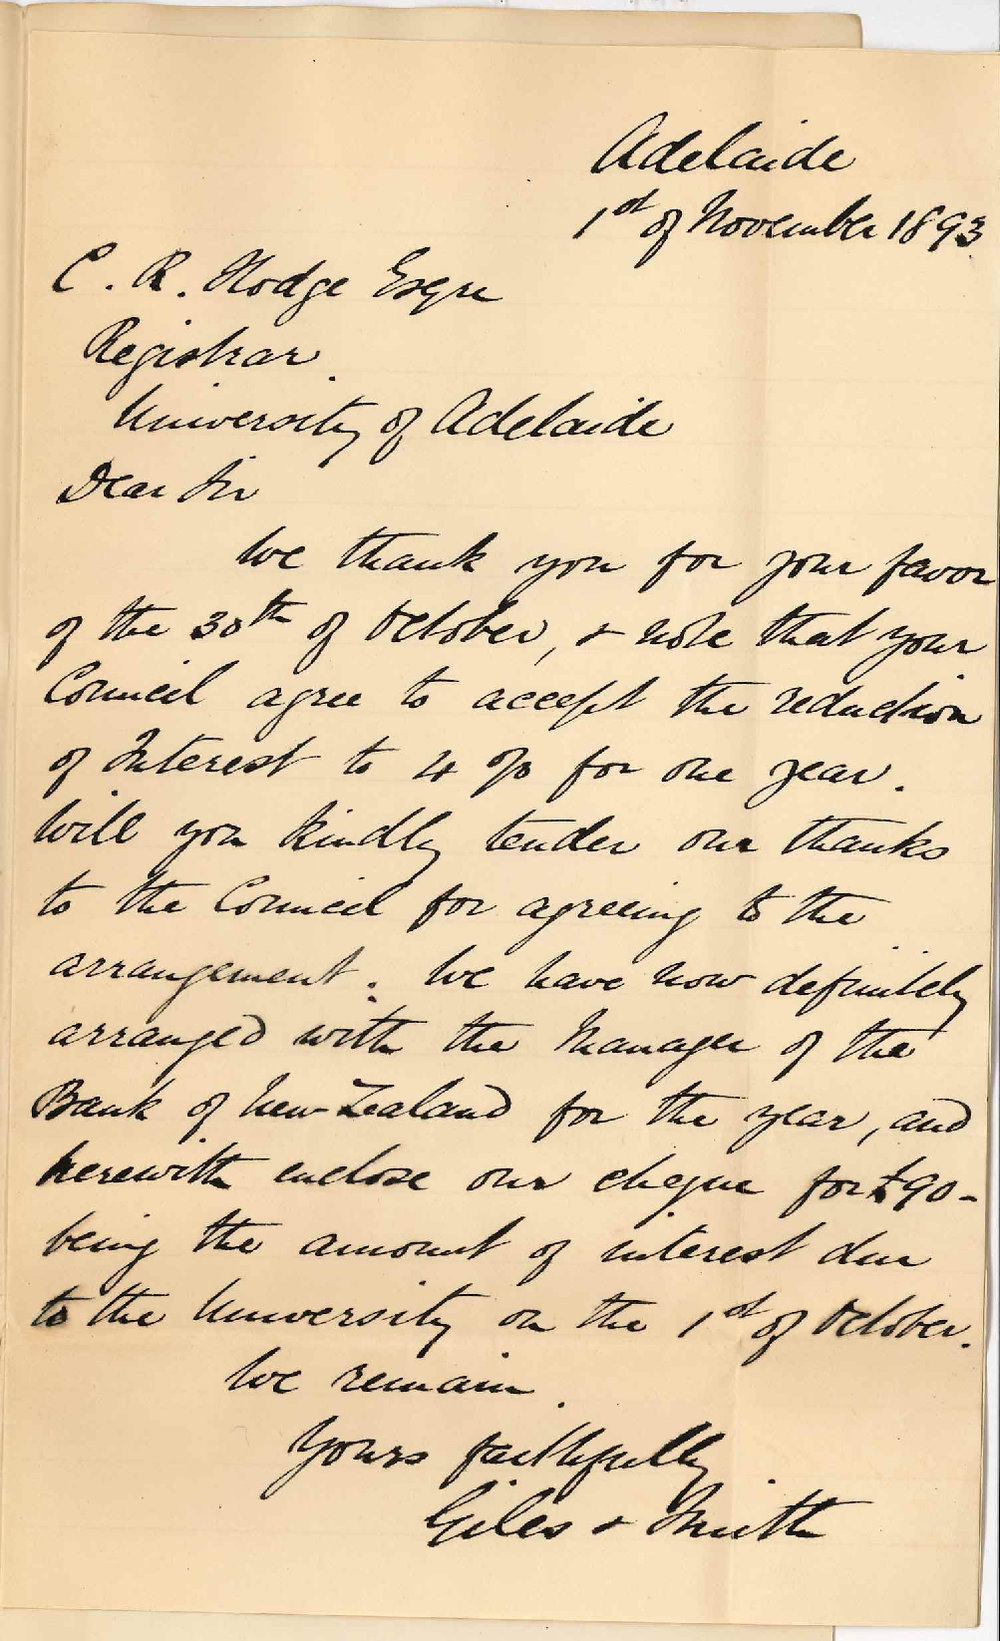 Adelaide
1st of November 1893
C. R. Hodge Esqre
Registrar.
University of Adelaide
Dear Sir
We thank you for your favor
of the 30th of October, & note that your
Council agree to accept the reduction
of Interest to 4 % for one year.
Will you kindly tender our thanks
to the Council for agreeing to the
arrangement. We have now definitely
arranged with the Manager of the
Bank of New Zealand for the year, and
herewith enclose our cheque for £90-
being the amount of interest due
to the University on the 1st of October.
We remain.
Yours faithfully
Giles & Smith